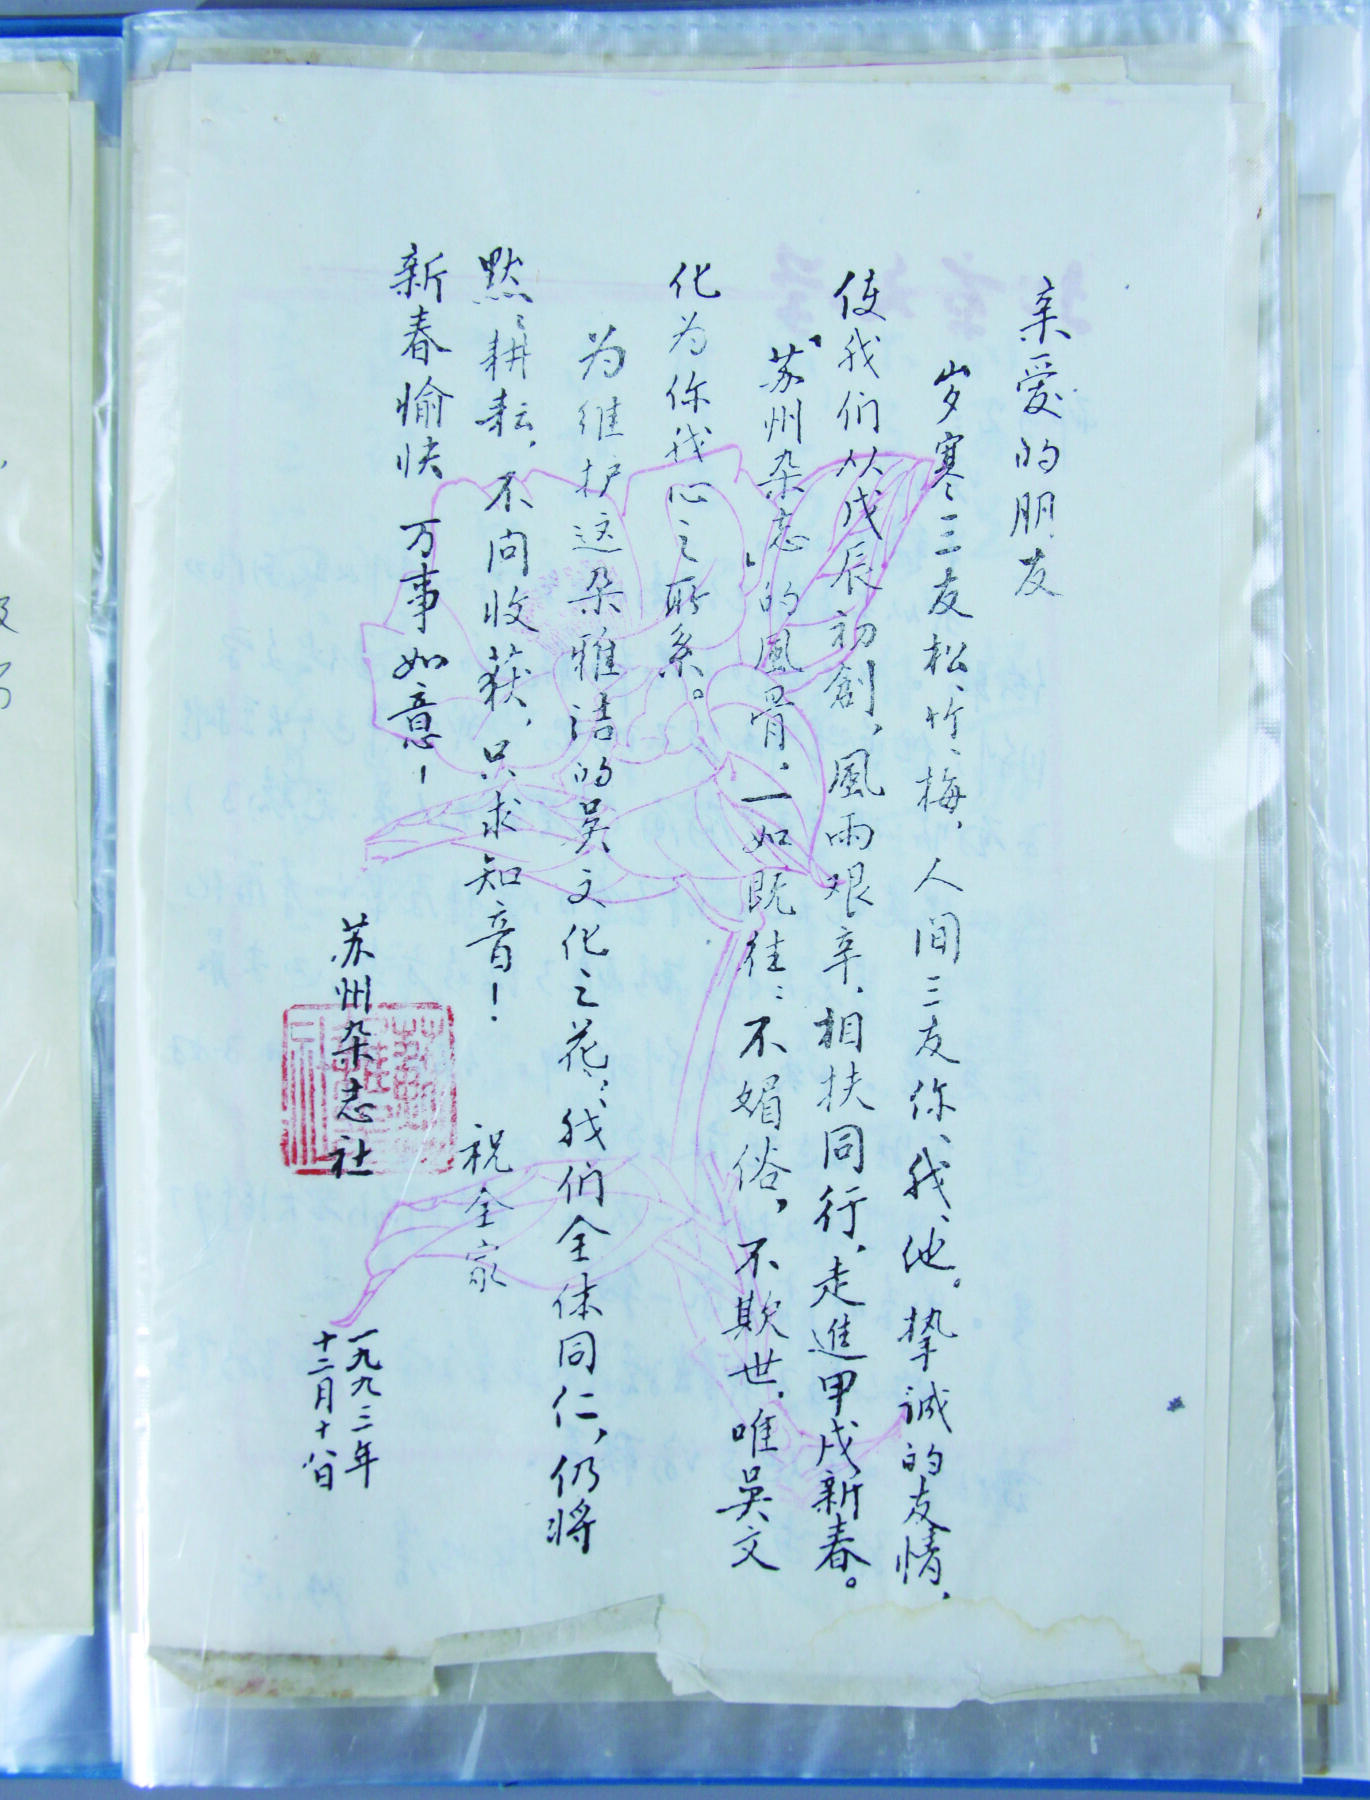 亲爱的朋友
岁寒三友松、竹、梅，人间三友你、我、他。挚诚的友情，
使我们从戊辰初創，風雨艰辛，相扶同行，走進甲戌新春。
“苏州杂志”的風骨，一如既往：不媚俗，不欺世，唯吴文
化为你我心之所系。
为维护这朵雅洁的吴文化之花，我们全体同仁，仍将
默默耕耘，不问收获，只求知音！ 祝全家
新春愉快 万事如意！
苏州杂志社
一九九三年
十二月十八日